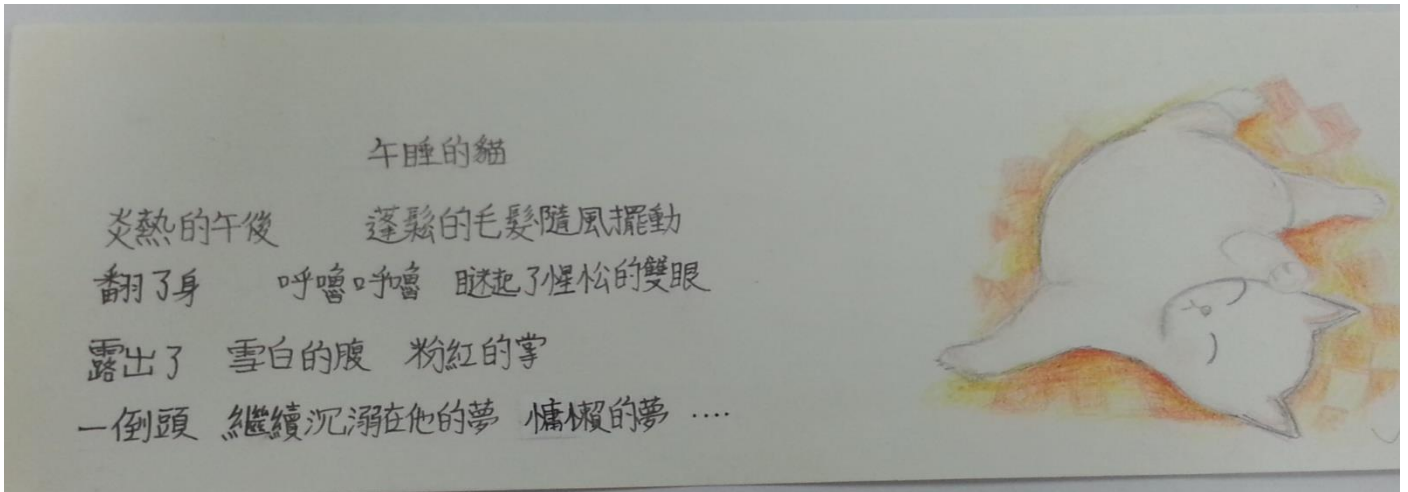 午睡的貓
炎熱的午後 蓬鬆的毛髮隨風擺動
翻了身 呼嚕呼嚕 瞇起了惺忪的雙眼
露出了 雪白的腹 粉紅的掌
一倒頭 繼續沉溺在他的夢 慵懶的夢 ....